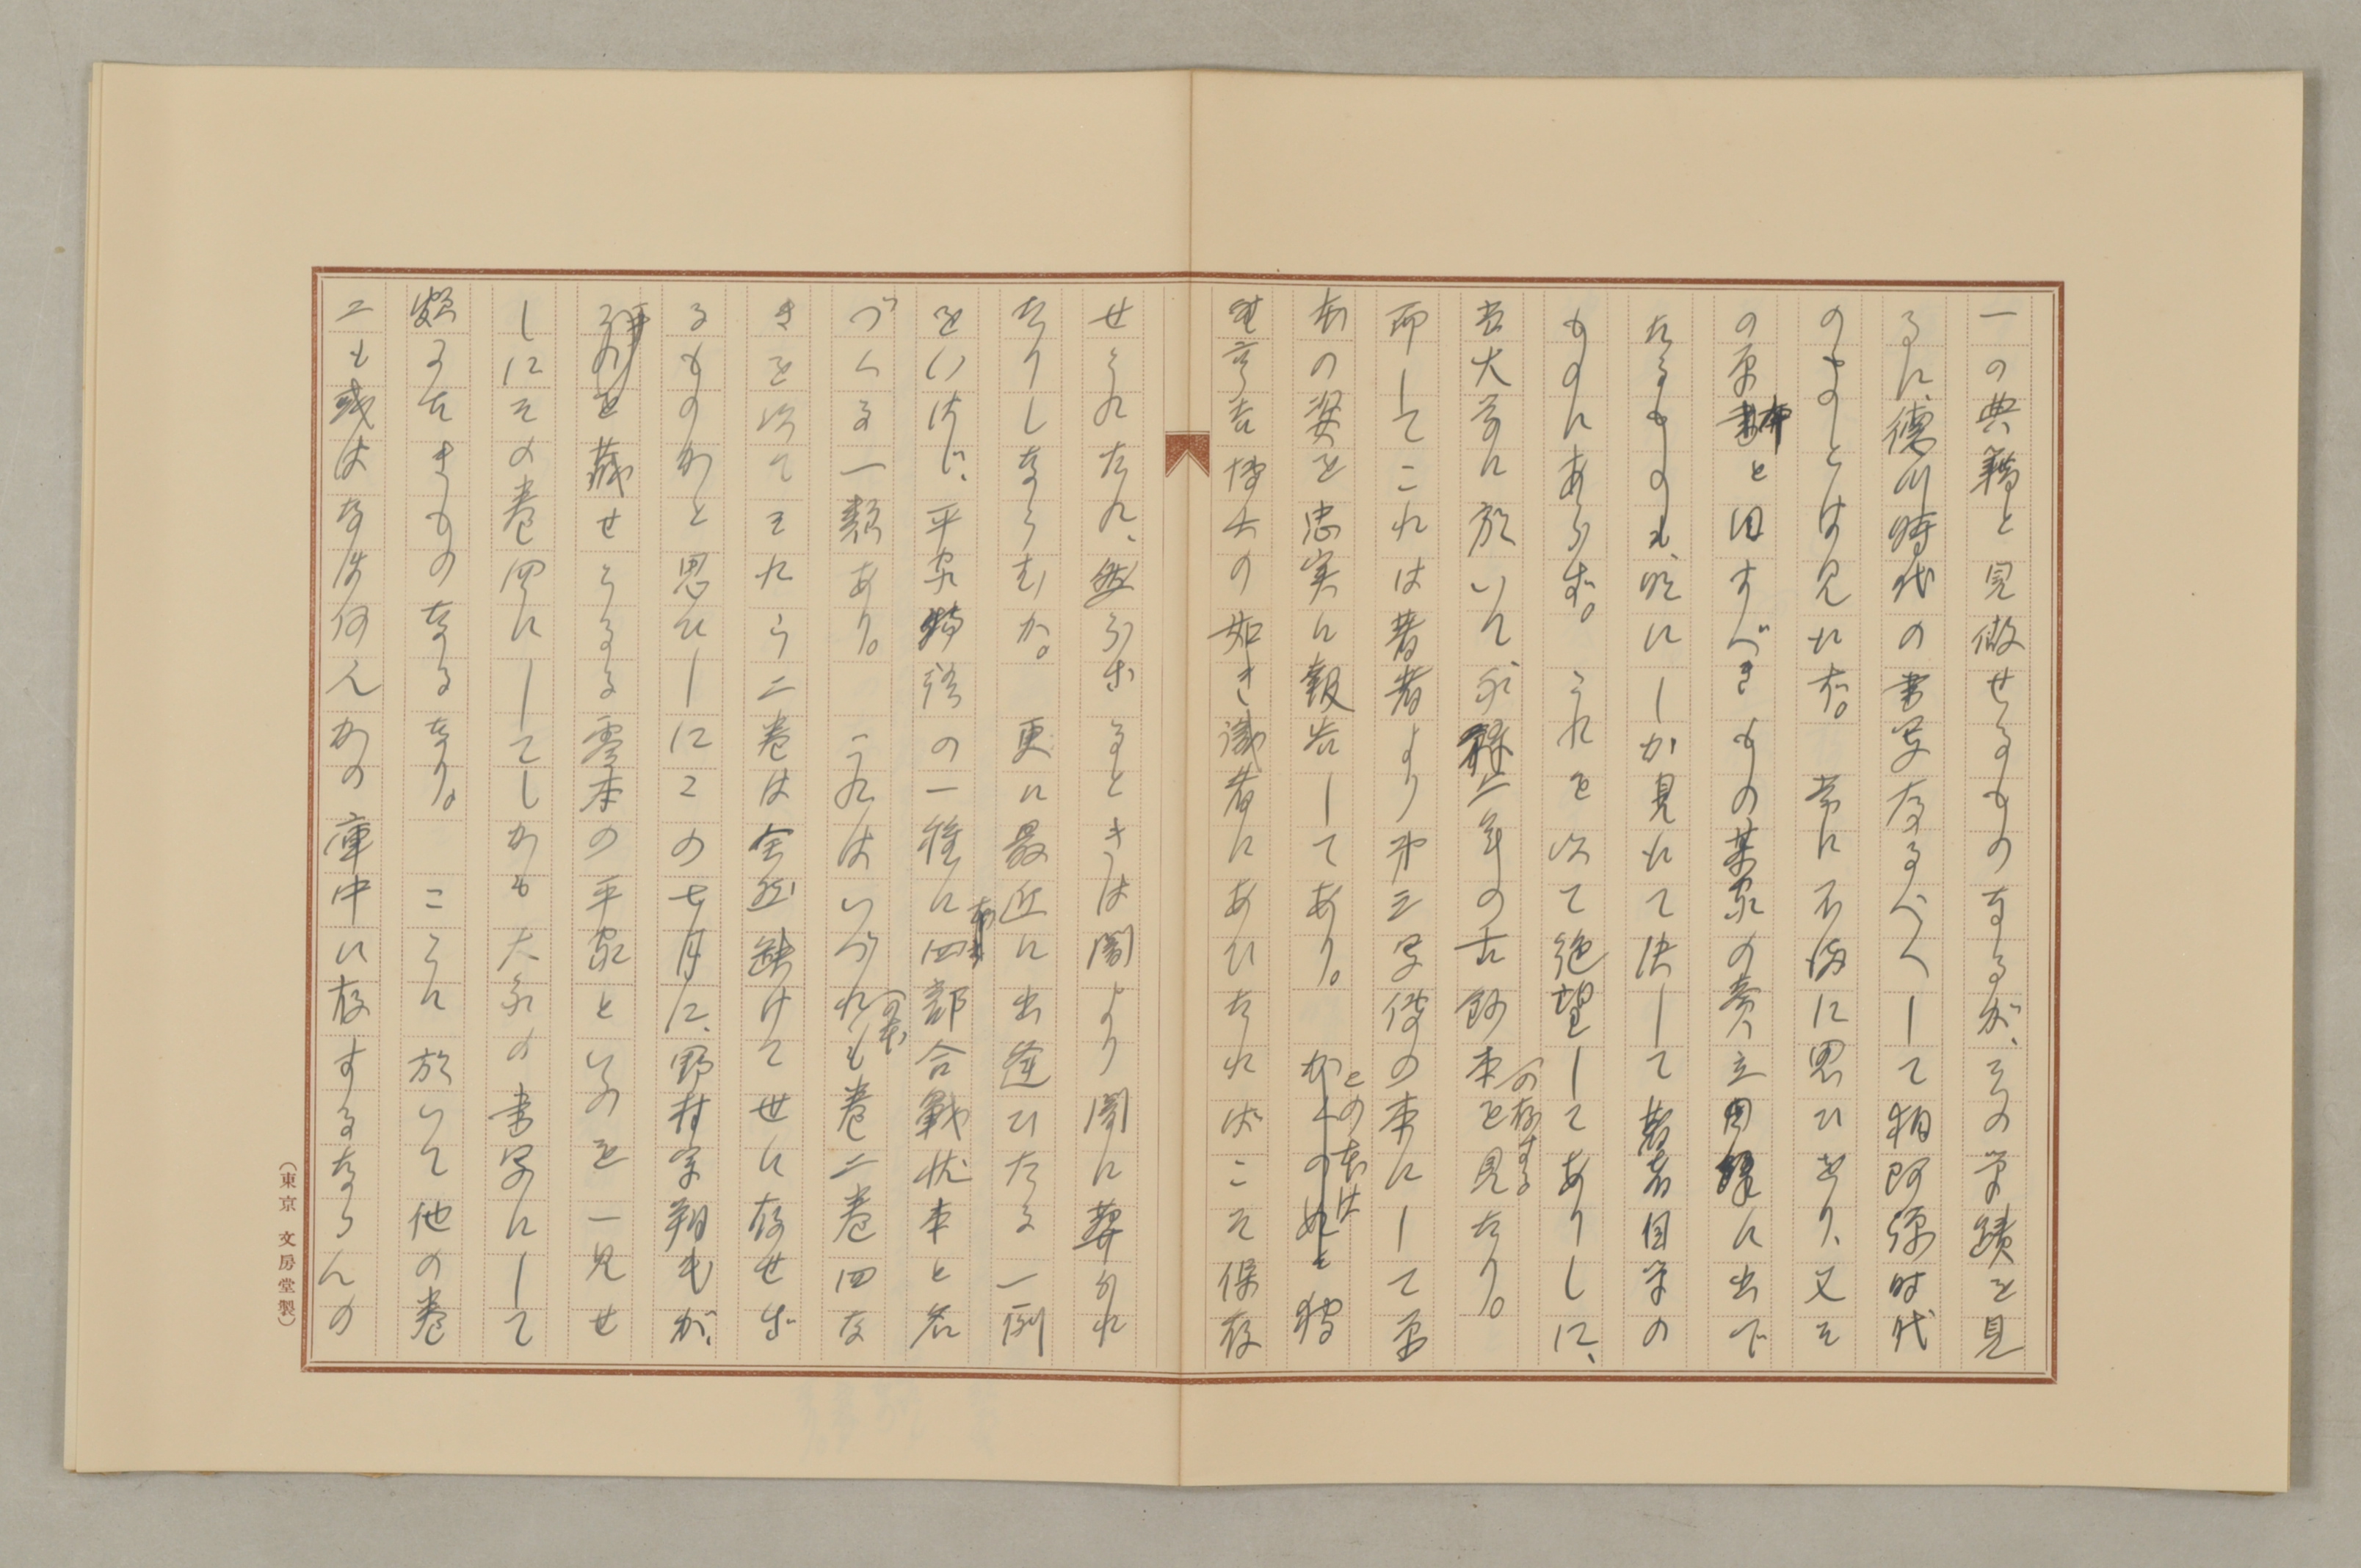 一の典籍と見做せるものなるが、その筆蹟を見
るに、徳川時代の書写なるべくして相阿弥時代
のものとは見れず。 常に不満に思ひをり、又そ
の原本と目すべきもの某家の売立目録に出で
たるものも、明にしか見れて決して著者自筆の
ものにあらず。 これを以て絶望してありしに、
大学に於いて永禄二年の古鈔本の存するを見たり。
而してこれは著者より第三写伝の本にして原
本の姿を忠実に報告してあり。 この本は
の如き識者にあひたればこそ保存
せられたれ、然らざるときは闇より闇に葬られ
たりしならむか。 更に最近に出逢ひたる一例
をいはば、平家物語の一種に四部合戦状本と名
づくる一類あり。 これはいづれの本も巻二巻四な
きを以てこれら二巻は全然缺けて世に存せざ
るものかと思ひしにこの七月に、野村宗朔氏が、
その蔵せらるる零本の平家といふを一見せ
しにその巻四にしてしかも大永の書写にして
頗る古きものなるなり。 これに於いて他の巻
二も或はなほ何人かの庫中に存するならんの
（東京 文房堂製）